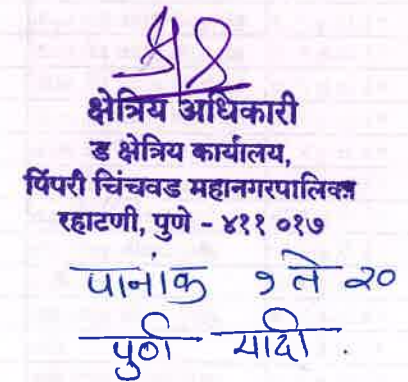 क्षेत्रिय अधिकारी
ड क्षेत्रिय कार्यालय,
पिंपरी चिंचवड महानगरपालिका
रहाटणी, पुणे - ४११ ०१७
पानांक १ ते २०
पुर्ण यादी .